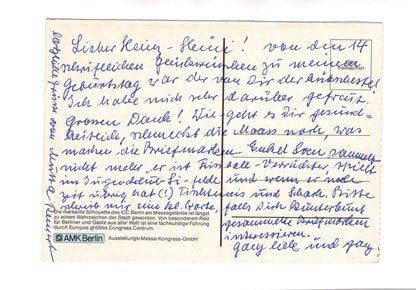 Lieber Heinz-Heine! von den 14
schriftlichen Geburtswünschen zu meinem
Geburtstag war der von Dir der
Ich habe mich sehr darüber gefreut.
Grossen Dank! Wie geht es Dir gesund-
heitlich, schmeckt die Maass noch, was
machen die Briefmarken. Enkel Sven sammelt
nicht mehr er ist Fussball-Verrückter spielt
im und wenn er noch
zeit übrig hat (!) Tischtennis und Schach. Bitte
falls Dich kunterbunt
gesammelte Briefmarken
interessieren.
ganz liebe und ganz
herzliche Grüsse von
Freimachen
Die markante Silhouette des ICC Berlin am Messegelände ist längst
zu einem Wahrzeichen der Stadt geworden. Von besonderem Reiz
für Berliner und Gäste aus aller Welt ist eine fachkundige Führung
durch Europas größtes Congress Centrum.
AMK Berlin Ausstellungs-Messe-Kongress-GmbH